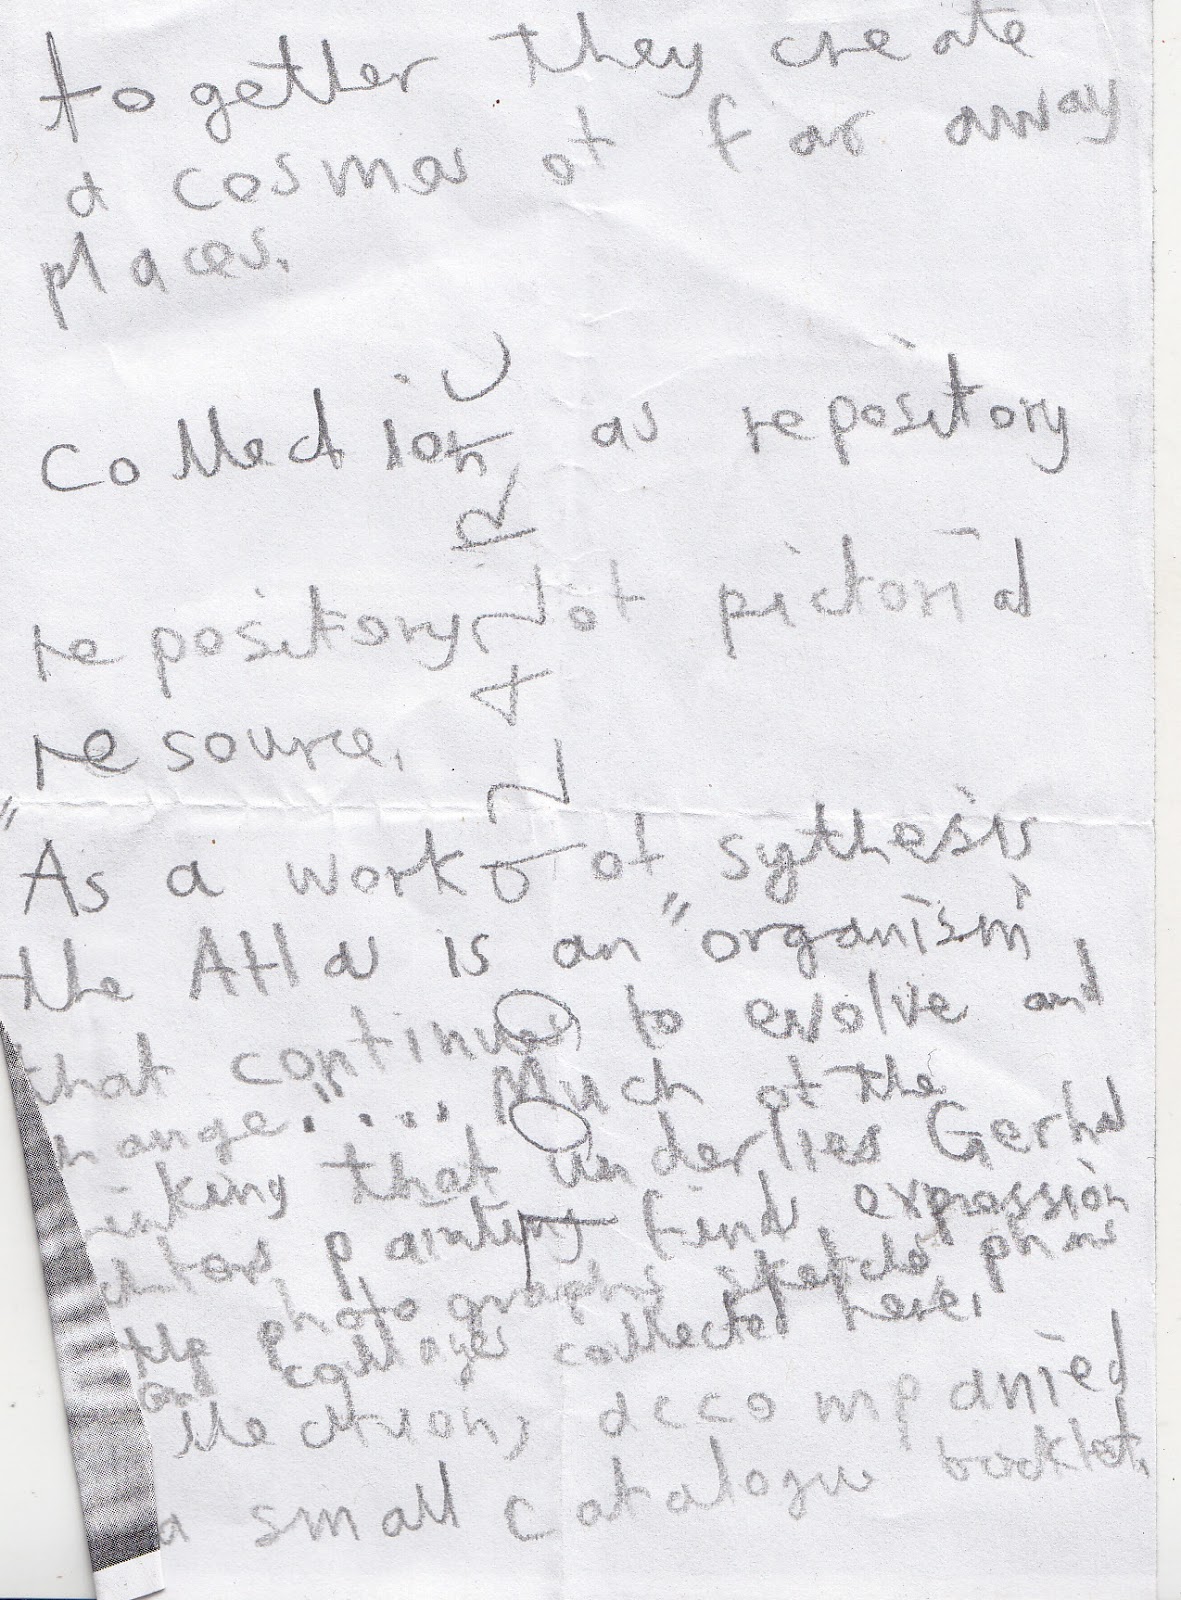 together they create
a cosmos of far away
places.
Collection as repository
repository, not pictorial
resource.
"As a work of sythesis
the Atlas is an "organism
that continues to evolve and
hange..... Much of the
inking that underlies Gerhad
chters painting finds expression
the photographs sketches plans
and collages collected here.
llections, accompanied
a small catalogue booklet.